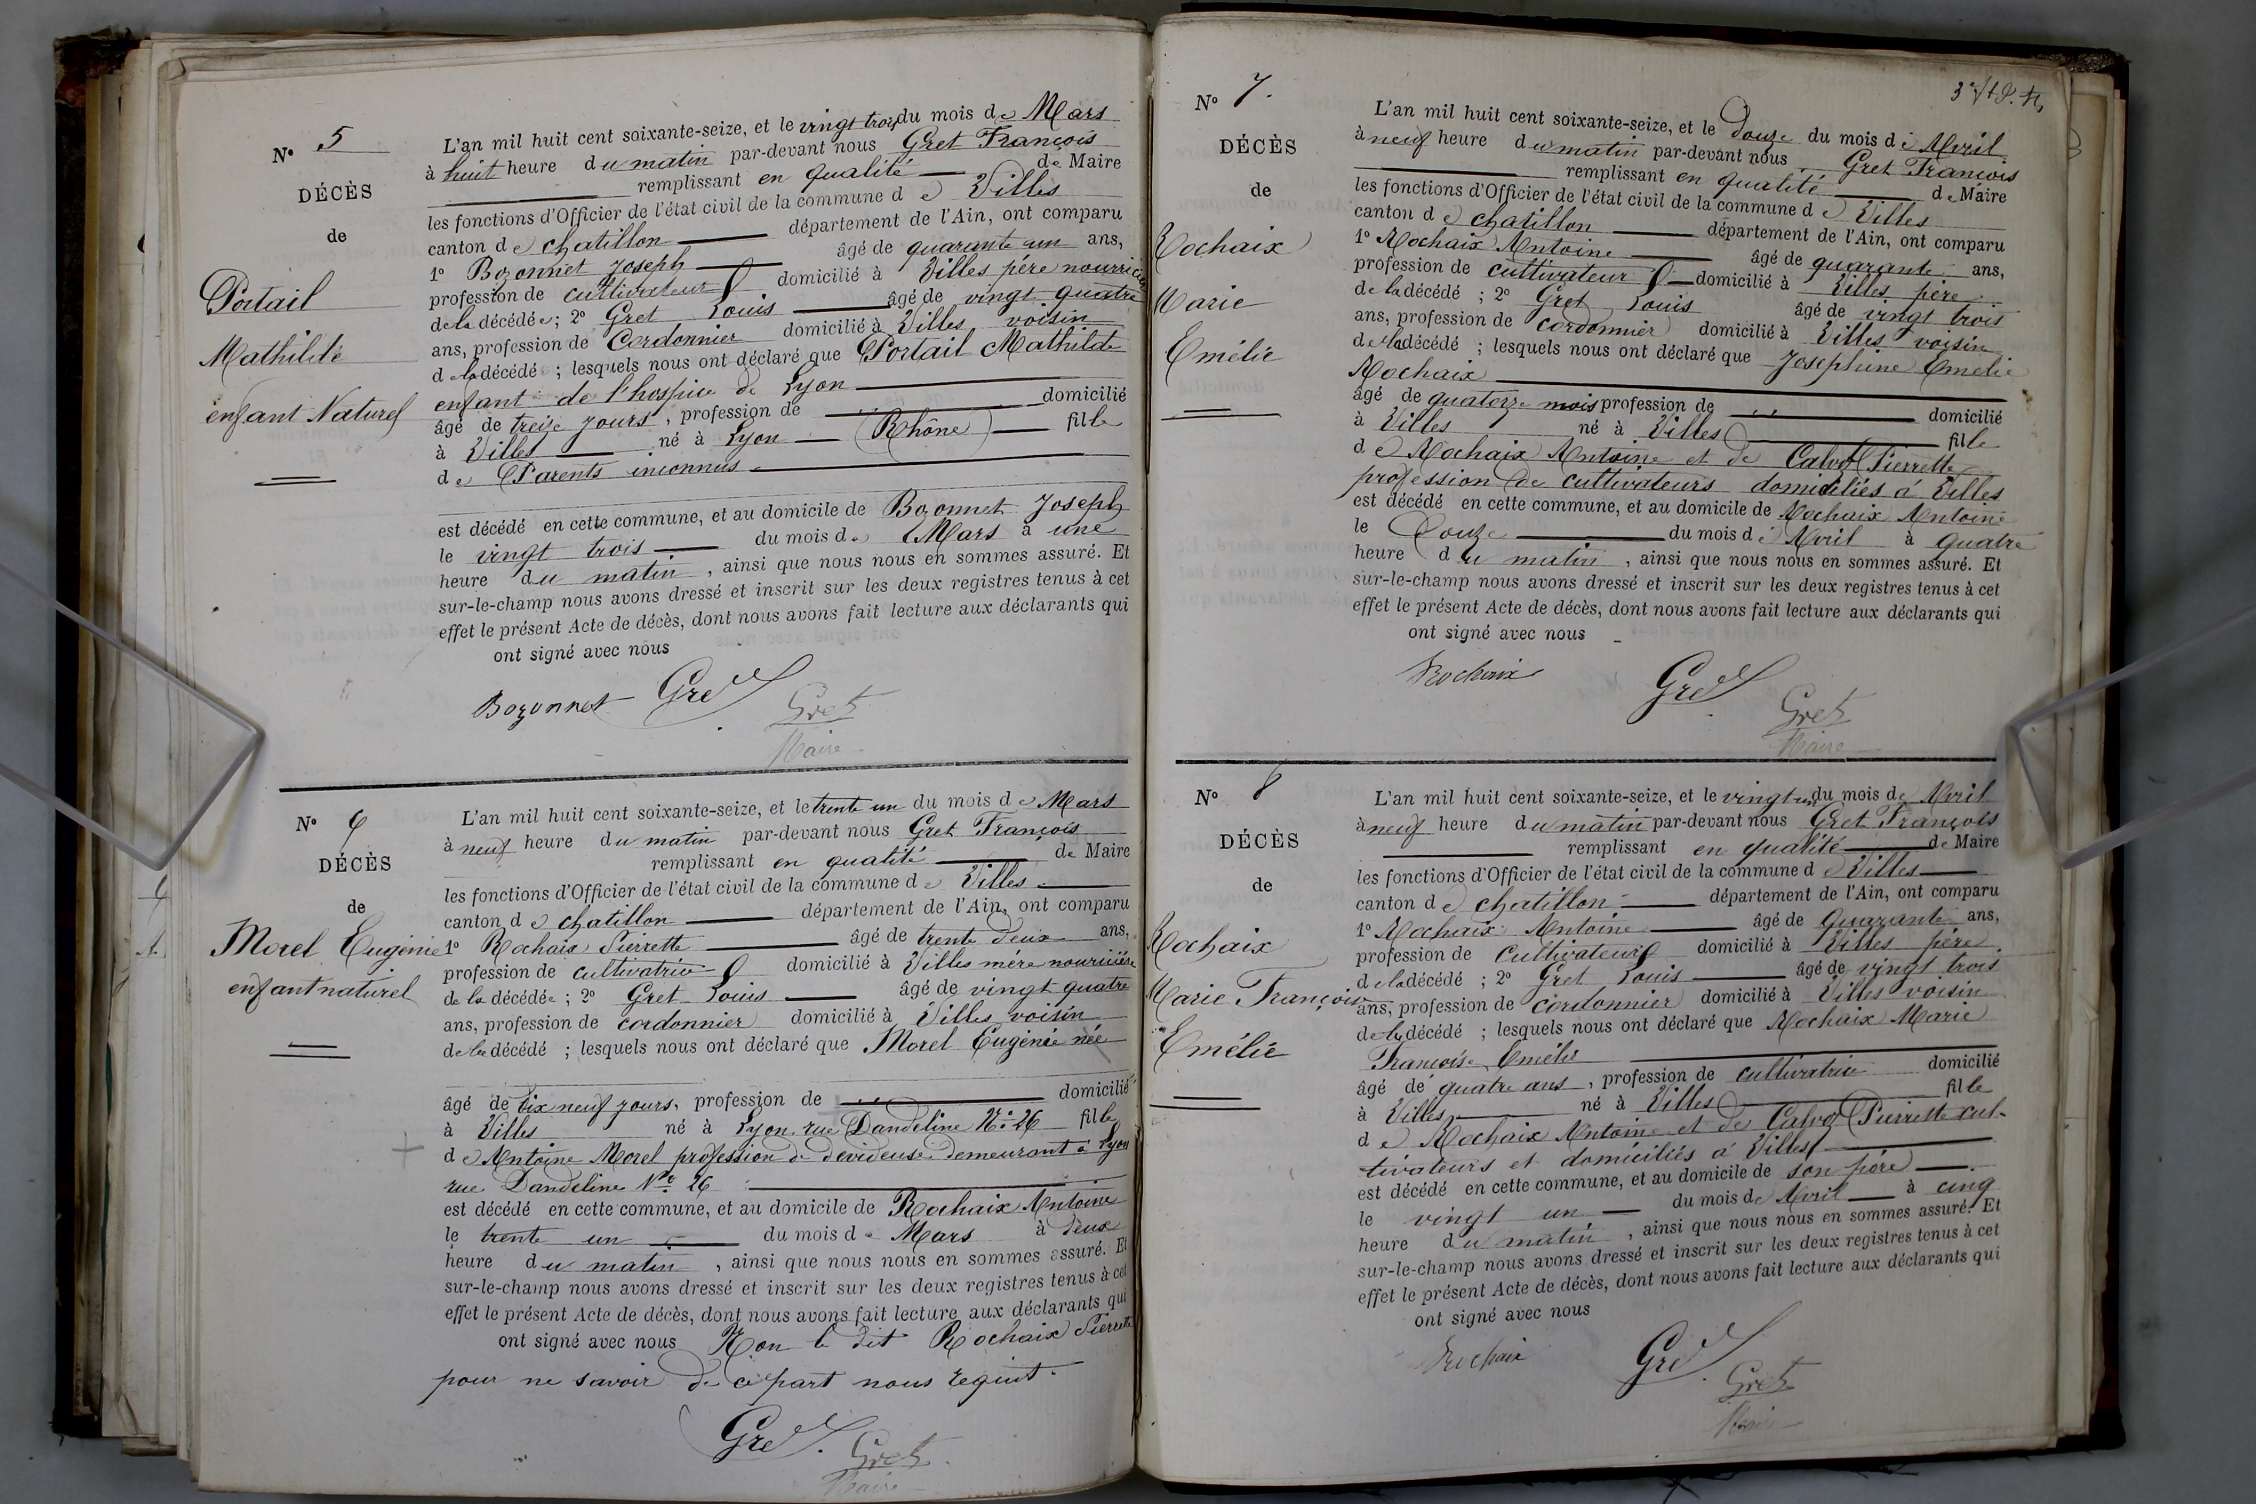 N° 5
DÉCÈS
de
Portail
Mathilde
enfant Naturel
L'an mil huit cent soixante-seize, et le vingt trois du mois de Mars
à huit heure du matin par-devant nous Gret François
remplissant en qualité de Maire
les fonctions d'Officier de l'état civil de la commune de Villes
canton de chatillon département de l'Ain, ont comparu
1° Bozonnet Joseph âgé de quarante un ans,
profession de cultivateur domicilié à Villes père nourricier
de la décédée ; 2° Gret Louis âgé de vingt quatre
ans, profession de Cordonnier domicilié à Villes voisin
de la décédé ; lesquels nous ont déclaré que Portail Mathilde
enfant de l'hospice de Lyon
âgé de treize jours, profession de domicilié
à Villes né à Lyon (Rhône) fille
de Parents inconnus
est décédé en cette commune, et au domicile de Bozonnet Joseph
le vingt trois du mois de Mars à une
heure du matin, ainsi que nous nous en sommes assuré. Et
sur-le-champ nous avons dressé et inscrit sur les deux registres tenus à cet
effet le présent Acte de décès, dont nous avons fait lecture aux déclarants qui
ont signé avec nous
Bozonnet Gret Gret
Maire
N° 6
DÉCÈS
de
Morel Eugénie
enfant naturel
L'an mil huit cent soixante-seize, et le trente un du mois de Mars
à neuf heure du matin par-devant nous Gret François
remplissant en qualité de Maire
les fonctions d'Officier de l'état civil de la commune de Villes
canton de châtillon département de l'Ain, ont comparu
1° Rochaix Pierrette âgé de trente deux ans,
profession de cultivatrice domicilié à Villes mère nourricière
de la décédée ; 2° Gret Louis âgé de vingt quatre
ans, profession de cordonnier domicilié à Villes voisin
de la décédé ; lesquels nous ont déclaré que Morel Eugénie née
âgé de dix neuf jours, profession de domicilié
à Villes né à Lyon rue Dandeline N° 26 fille
de Antoine Morel profession de devideuse demeurant à Lyon
rue Dandeline N° 26
est décédé en cette commune, et au domicile de Rochaix Antoine
le trente un du mois de Mars à deux
heure du matin, ainsi que nous nous en sommes assuré. Et
sur-le-champ nous avons dressé et inscrit sur les deux registres tenus à cet
effet le présent Acte de décès, dont nous avons fait lecture aux déclarants qui
ont signé avec nous Non le dit Rochaix Pierrette
pour ne savoir de ce part nous requit.
Gret Gret
Maire
N° 7.
DÉCÈS
de
Rochaix
Marie
Emélie
L'an mil huit cent soixante-seize, et le Douze du mois de Avril
à neuf heure du matin par-devant nous Gret François
remplissant en qualité de Maire
les fonctions d'Officier de l'état civil de la commune de Villes
canton de chatillon département de l'Ain, ont comparu
1° Rochaix Antoine âgé de quarante ans,
profession de cultivateur domicilié à Villes père
de la décédé ; 2° Gret Louis âgé de vingt trois
ans, profession de cordonnier domicilié à Villes voisin
de la décédé ; lesquels nous ont déclaré que Josephine Emélie
Rochaix
âgé de quatorze mois profession de domicilié
à Villes né à Villes fille
de Rochaix Antoine et de Calvo Pierrette
profession de cultivateurs domiciliés à Villes
est décédé en cette commune, et au domicile de Rochaix Antoine
le Douze du mois de Avril à quatre
heure du matin, ainsi que nous nous en sommes assuré. Et
sur-le-champ nous avons dressé et inscrit sur les deux registres tenus à cet
effet le présent Acte de décès, dont nous avons fait lecture aux déclarants qui
ont signé avec nous
Rochaix Gret Gret
Maire
N° 8
DÉCÈS
de
Rochaix
Marie Françoise
Emélie
L'an mil huit cent soixante-seize, et le vingt un du mois de Avril
à neuf heure du matin par-devant nous Gret François
remplissant en qualité de Maire
les fonctions d'Officier de l'état civil de la commune de Villes
canton de chatillon département de l'Ain, ont comparu
1° Rochaix Antoine âgé de Quarante ans,
profession de Cultivateur domicilié à Villes père
de la décédé ; 2° Gret Louis âgé de vingt trois
ans, profession de cordonnier domicilié à Villes voisin
de la décédé ; lesquels nous ont déclaré que Rochaix Marie
Françoise Emélie
âgé de quatre ans, profession de cultivatrice domicilié
à Villes né à Villes fille
de Rochaix Antoine et de Calvo Pierrette cul-
tivateurs et domiciliés à Villes
est décédé en cette commune, et au domicile de son père
le vingt un du mois de Avril à cinq
heure du matin, ainsi que nous nous en sommes assuré. Et
sur-le-champ nous avons dressé et inscrit sur les deux registres tenus à cet
effet le présent Acte de décès, dont nous avons fait lecture aux déclarants qui
ont signé avec nous
Rochaix Gret Gret
Maire